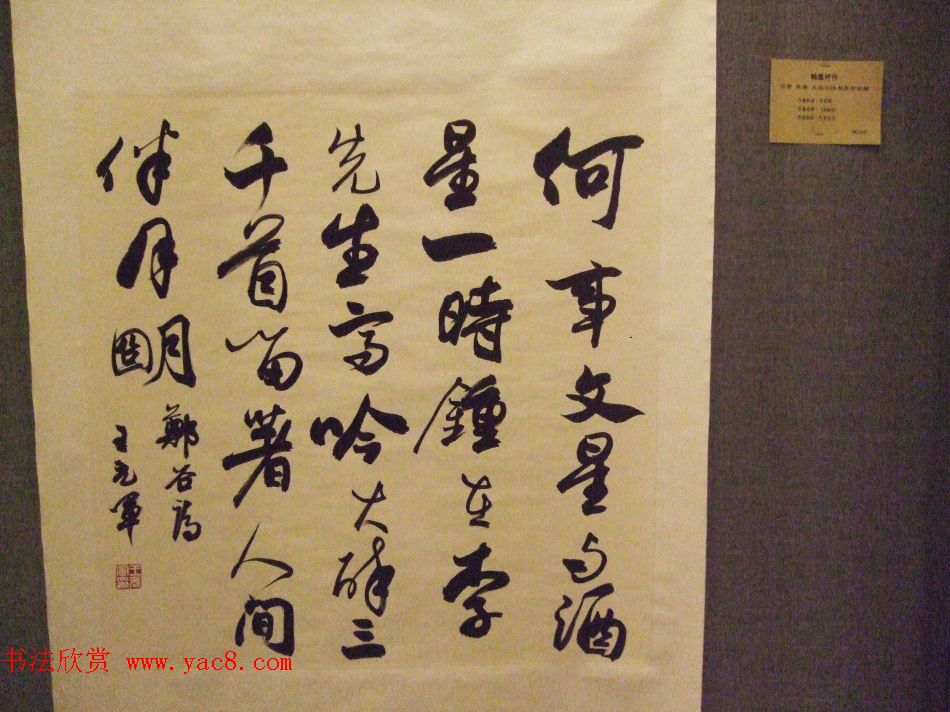 何事文星与酒
星一時鍾在李
先生高吟大醉三
千首留著人間
伴月明
鄭谷詩
王元軍
书法欣赏 www.yac8.com